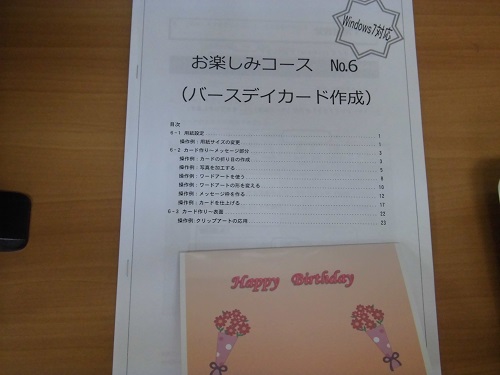 Windows7対応
お楽しみコース　No.6
（バースデイカード作成）
目次
6-1 用紙設定 1
操作例：用紙サイズの変更 1
6-2 カード作り－メッセージ部分 3
操作例：カードの折り目の作成 3
操作例：写真を加工する 5
操作例：ワードアートを使う 8
操作例：ワードアートの形を変える 10
操作例：メッセージ枠を作る 12
操作例：カードを仕上げる 17
6-3 カード作り－表面 22
操作例：クリップアートの応用 23
Happy Birthday